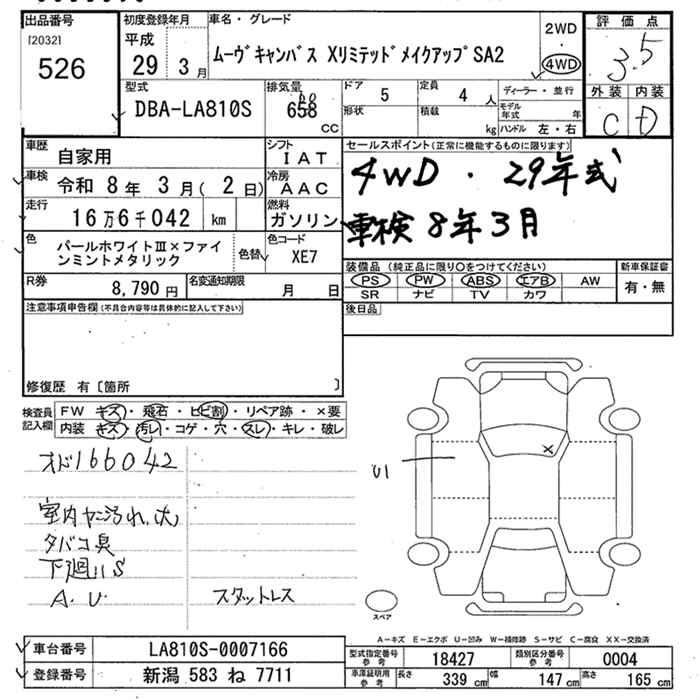 出品番号
[2032]
526
初度登録年月
平成
29年 3月
車名・グレード
ムーヴキャンバス XリミテッドメイクアップSA2
2WD
・
4WD
評価点
3.5
外装 内装
C D
型式
DBA-LA810S
排気量
660
658
CC
ドア 5
定員 4人
形状
積載 kg
ディーラー・並行
モデル年式 年
ハンドル 左・右
車歴
自家用
シフト
IAT
車検
令和 8年 3月( 2日)
冷房
AAC
走行
16万6千042 km
燃料
ガソリン
色
パールホワイトⅢ×ファインミントメタリック
色替
色コード
XE7
R券
8,790円
名変通知期限
月 日
セールスポイント(正常に機能するものに限ります)
4WD・29年式
車検8年3月
装備品(純正品に限り○をつけてください)
PS PW ABS エアB AW
SR ナビ TV カワ
新車保証書
有・無
後日品
注意事項申告欄(不具合内容等は具体的に記入して下さい)
修復歴 有〔箇所 〕
検査員記入欄
FW キズ・飛石・ヒビ割・リペア跡・×要
内装 キズ・汚レ・コゲ・穴・スレ・キレ・破レ
オド166042
室内ヤニ汚れ大
タバコ臭
下廻りS
A.U.
スタットレス
U1
×
スペア
A-キズ E-エクボ U-凹み W-補修跡 S-サビ C-腐食 XX-交換済
車台番号
LA810S-0007166
登録番号
新潟 583 ね 7711
型式指定番号
参考
18427
類別区分番号
参考
0004
車庫証明用
参考
長さ 339 cm
幅 147 cm
高さ 165 cm